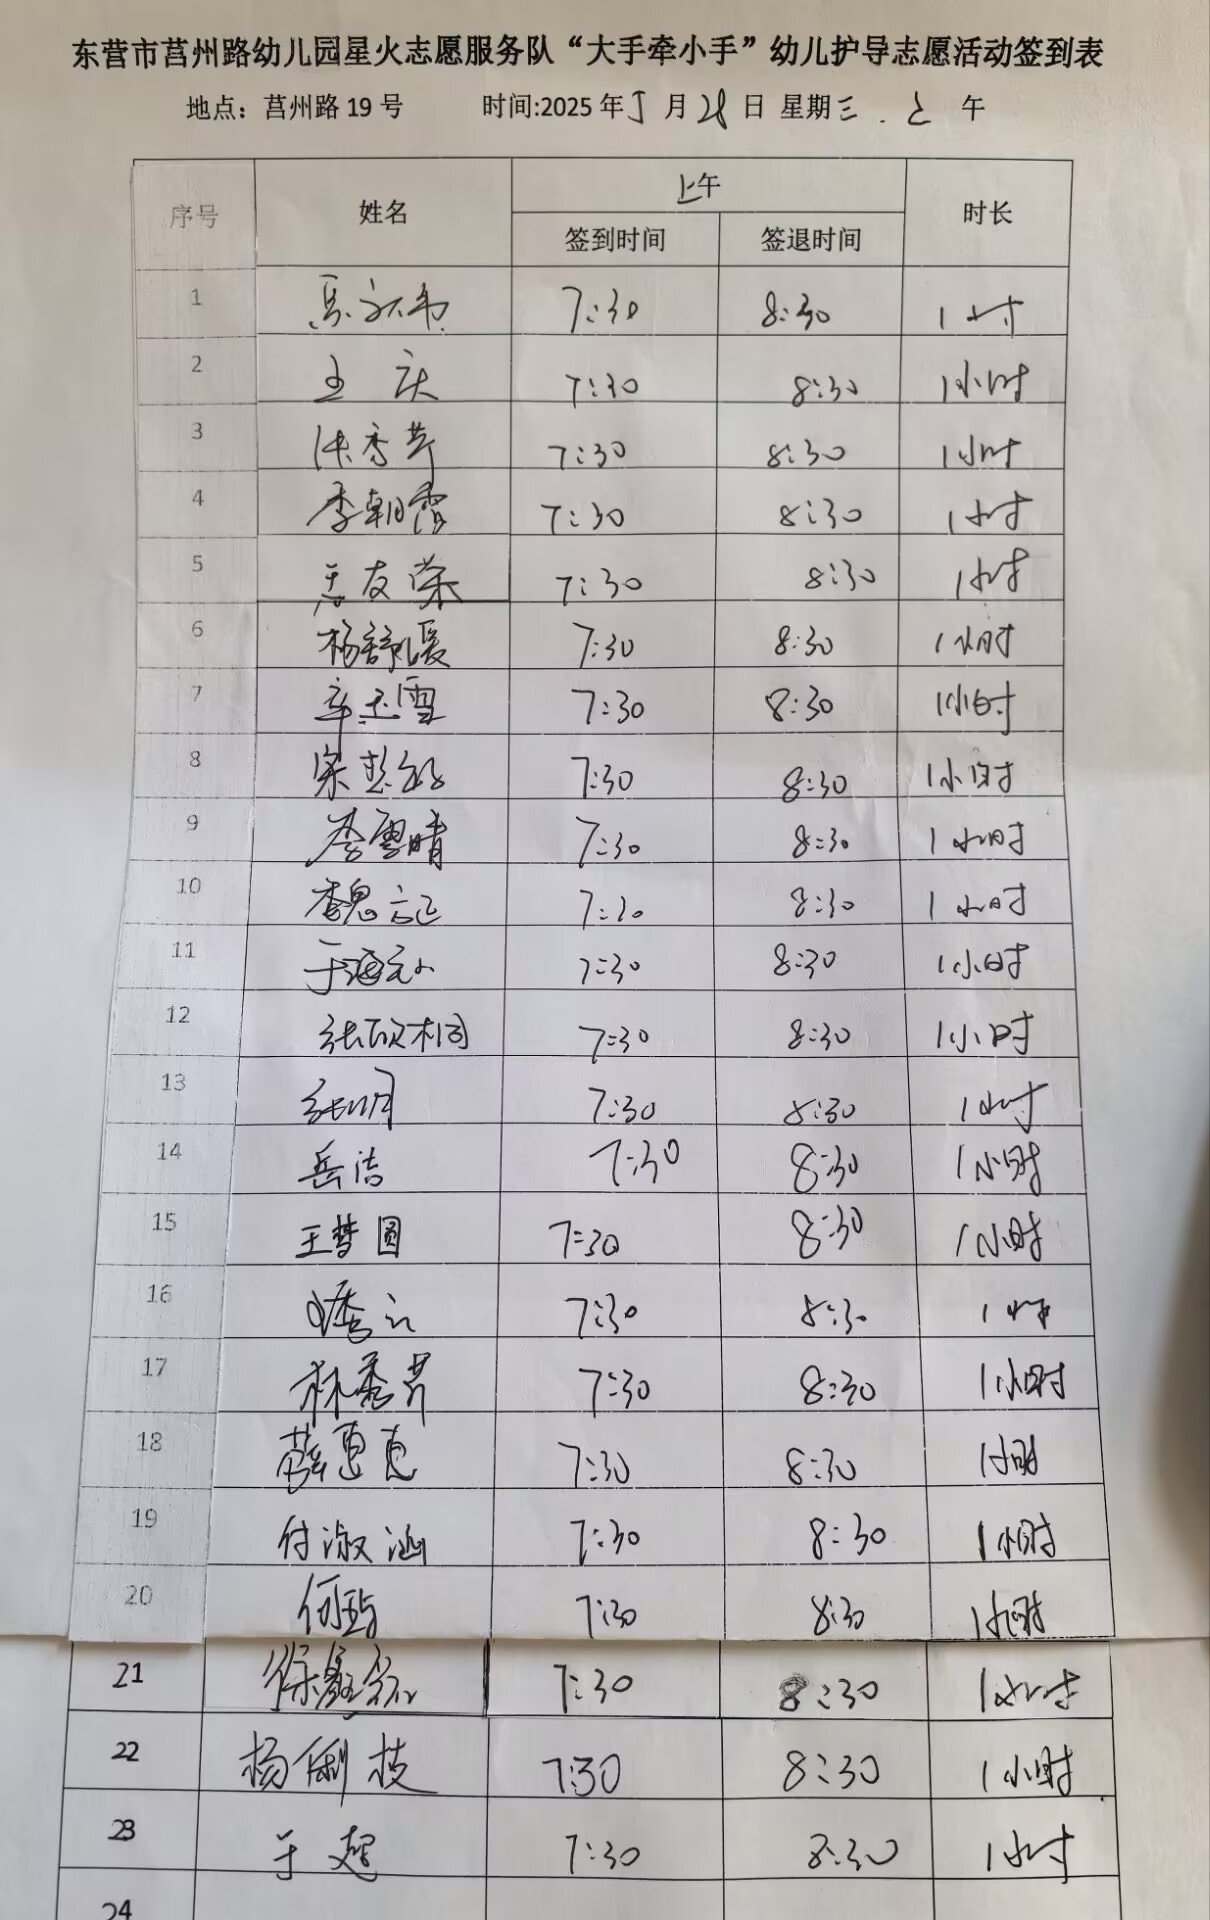 东营市莒州路幼儿园星火志愿服务队“大手牵小手”幼儿护导志愿活动签到表
地点：莒州路 19 号 时间:2025 年 5 月 28 日 星期三 . 上 午
序号 姓名 上午 时长
签到时间 签退时间
1 7:30 8:30 1小时
2 王庆 7:30 8:30 1小时
3 张秀芹 7:30 8:30 1小时
4 李朝霞 7:30 8:30 1小时
5 友荣 7:30 8:30 1小时
6 杨舒媛 7:30 8:30 1小时
7 辛玉雪 7:30 8:30 1小时
8 宋 7:30 8:30 1小时
9 李雪晴 7:30 8:30 1小时
10 7:30 8:30 1小时
11 于海 7:30 8:30 1小时
12 张欣桐 7:30 8:30 1小时
13 张明月 7:30 8:30 1小时
14 岳洁 7:30 8:30 1小时
15 王梦圆 7:30 8:30 1小时
16 7:30 8:30 1小时
17 林秀芹 7:30 8:30 1小时
18 薛惠惠 7:30 8:30 1小时
19 付淑涵 7:30 8:30 1小时
20 何 7:30 8:30 1小时
21 徐 7:30 8:30 1小时
22 杨俐枝 7:30 8:30 1小时
23 于 7:30 8:30 1小时
24